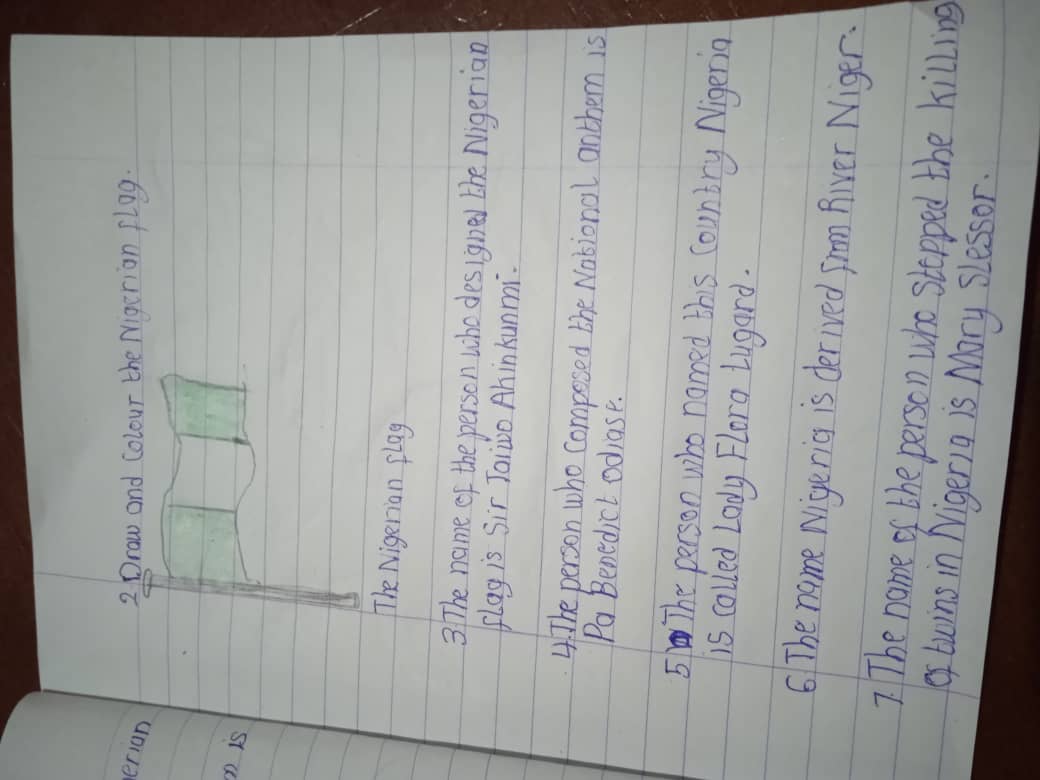 erian
n is
2. Draw and Colour the Nigerian flag.
The Nigerian flag
3. The name of the person who designed the Nigerian
flag is Sir Taiwo Akinkunmi.
4. The person who composed the National anthem is
Pa Benedict odiase.
5 The person who named this Country Nigeria
is called Lady Flora Lugard.
6 The name Nigeria is derived from River Niger.
7. The name of the person who stopped the killing
of twins in Nigeria is Mary Slessor.